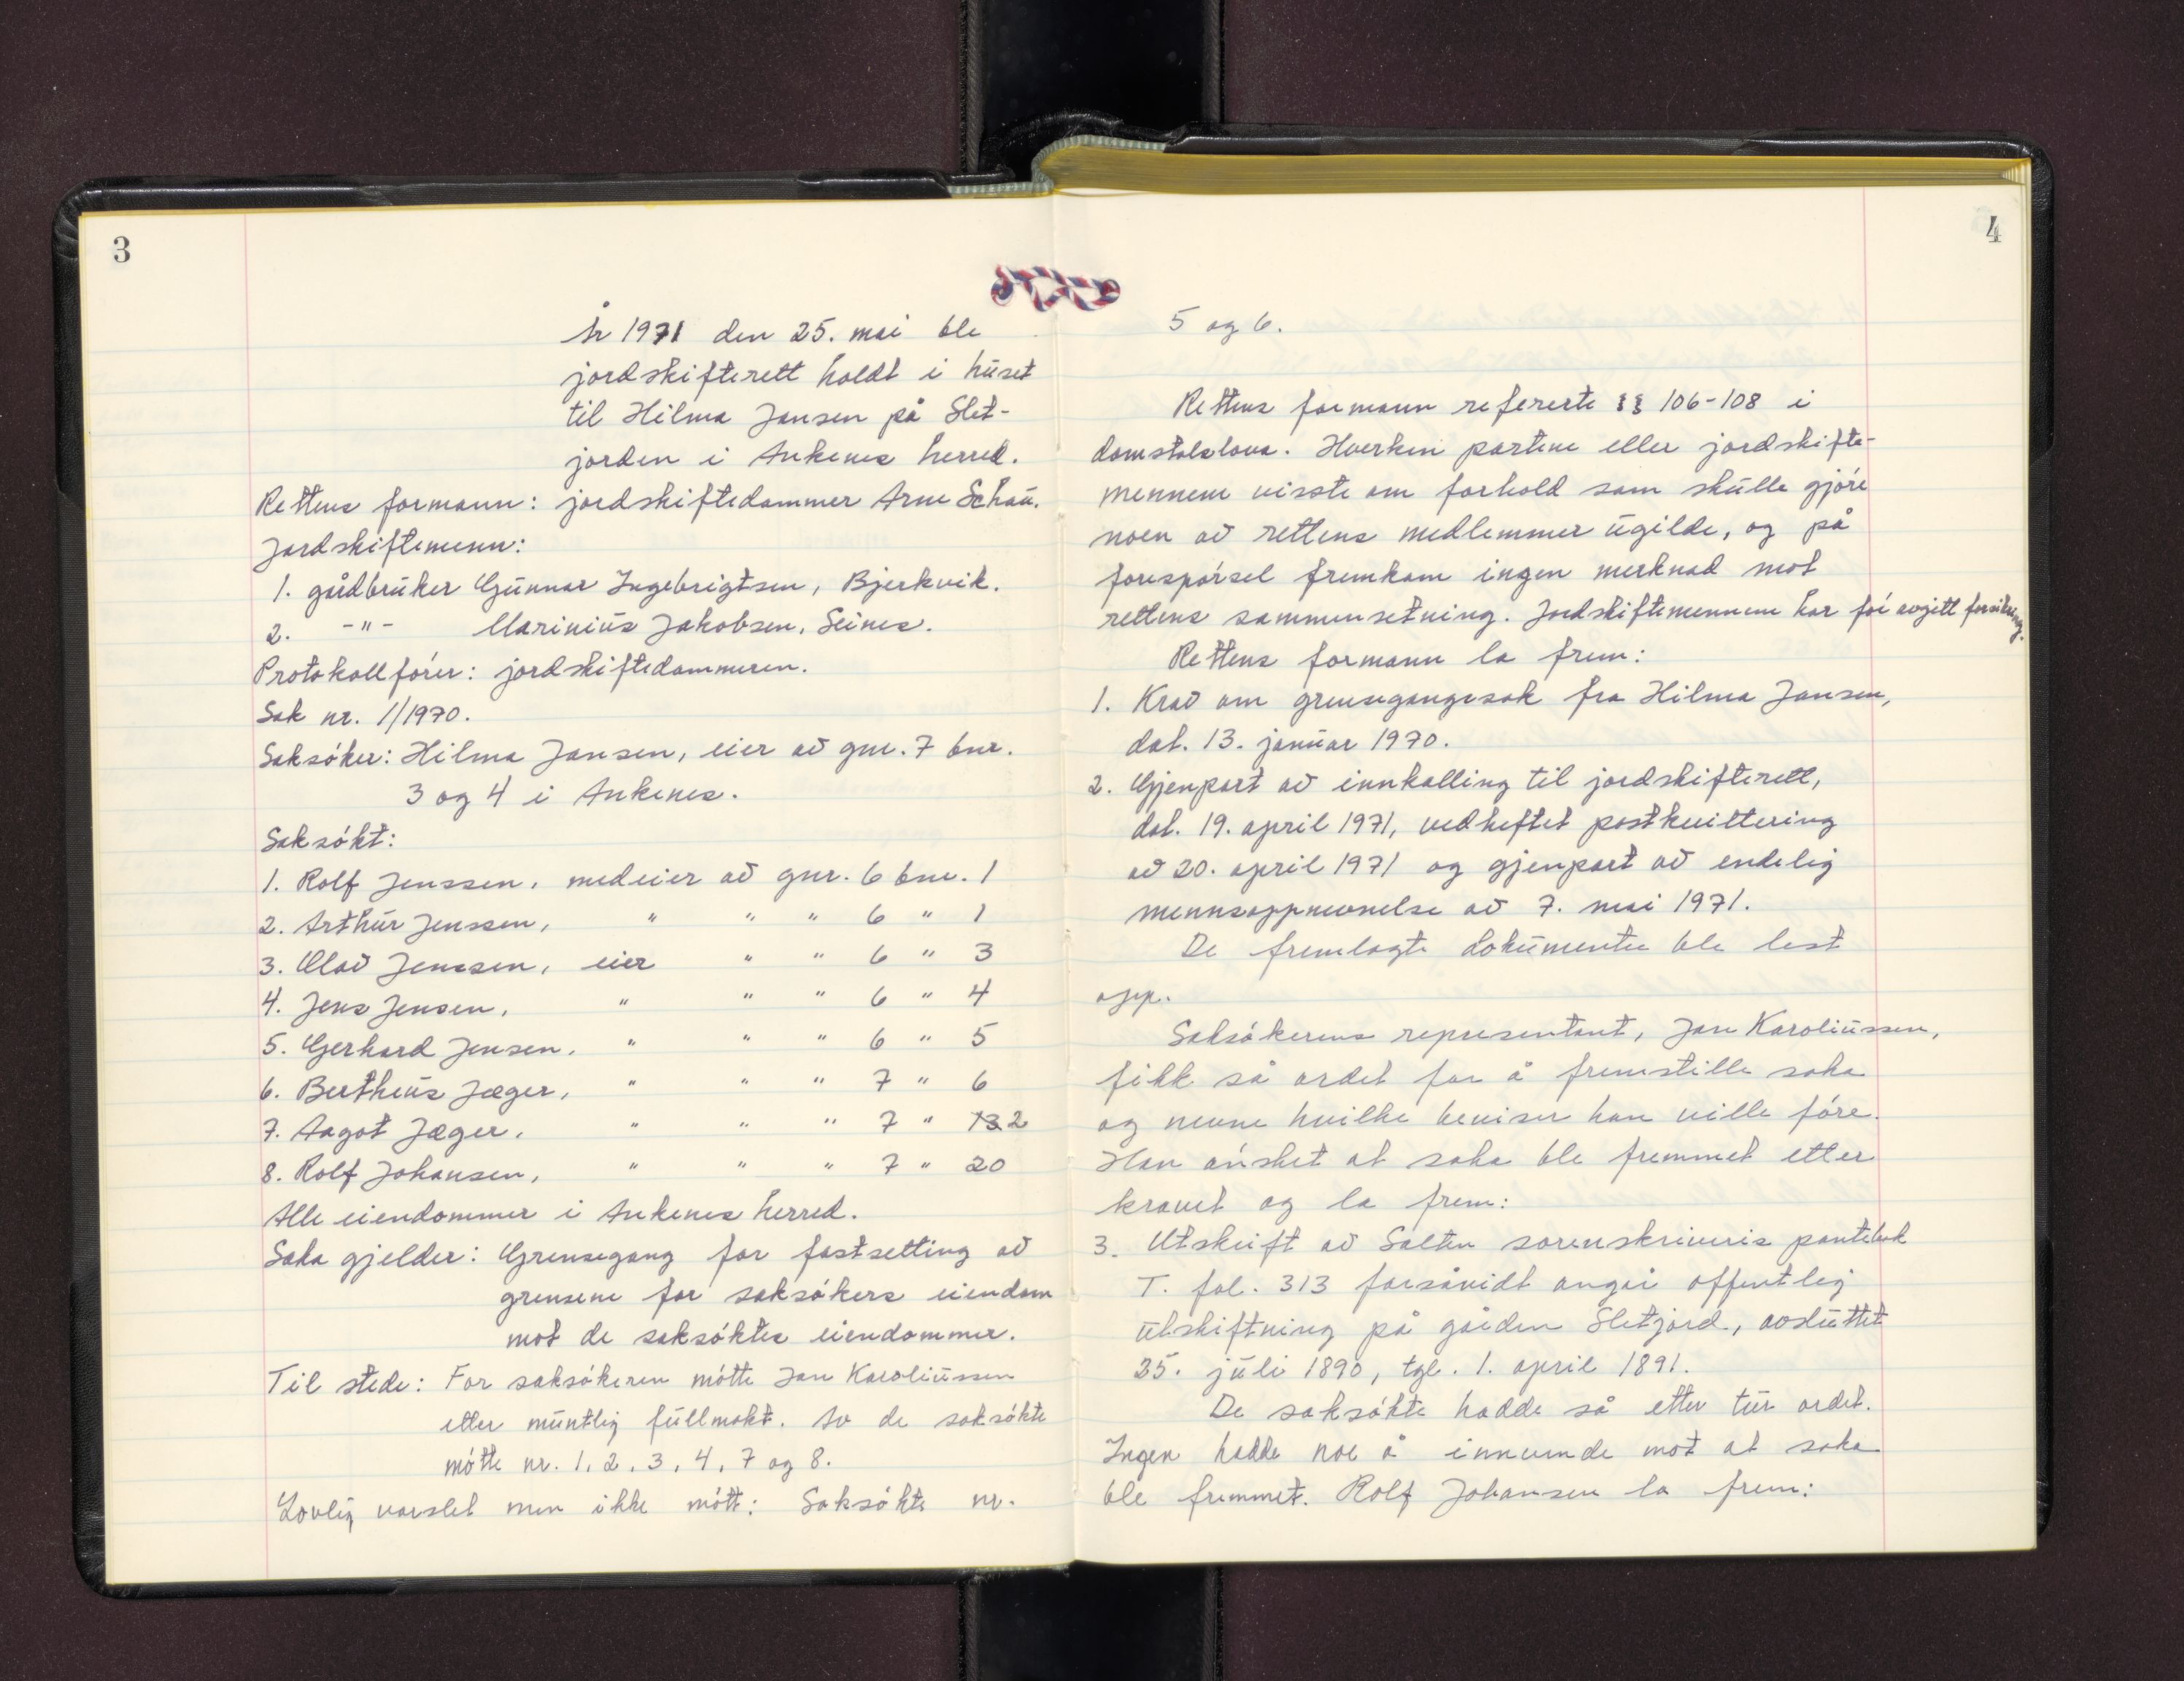 3
År 1971 den 25. mai ble
jordskifterett holdt i huset
til Hilma Jansen på Slet-
jorden i Ankenes herred.
Rettens formann: jordskiftedommer Arne Schau.
Jordskiftemenn:
1. gårdbruker Gunnar Ingebrigtsen, Bjerkvik.
2. -"- Marinius Jakobsen, Seines.
Protokollfører: jordskiftedommeren.
Sak nr. 1/1970.
Saksøker: Hilma Jansen, eier av gnr. 7 bnr.
3 og 4 i Ankenes.
Saksøkt:
1. Rolf Jenssen, medeier av gnr. 6 bnr. 1
2. Arthur Jenssen, " " " 6 " 1
3. Olav Jenssen, eier " " 6 " 3
4. Jens Jensen, " " " 6 " 4
5. Gerhard Jensen, " " " 6 " 5
6. Bertheus Jæger, " " " 7 " 6
7. Aagot Jæger, " " " 7 " 2
8. Rolf Johansen, " " " 7 " 20
Alle eiendommer i Ankenes herred.
Saka gjelder: Grensegang for fastsetting av
grensene for saksøkers eiendom
mot de saksøktes eiendommer.
Til stede: For saksøkeren møtte Jan Karoliussen
etter muntlig fullmakt. Av de saksøkte
møtte nr. 1, 2, 3, 4, 7 og 8.
Lovlig varslet men ikke møtt: Saksøkte nr.
4
5 og 6.
Rettens formann refererte §§ 106-108 i
domstolslova. Hverken partene eller jordskifte-
mennene visste om forhold som skulle gjøre
noen av rettens medlemmer ugilde, og på
forespørsel fremkom ingen merknad mot
rettens sammensetning. Jordskiftemennene har før avgitt forsikring.
Rettens formann la frem:
1. Krav om grensegangssak fra Hilma Jansen,
dat. 13. januar 1970.
2. Gjenpart av innkalling til jordskifterett,
dat. 19. april 1971, vedheftet postkvittering
av 20. april 1971 og gjenpart av endelig
mennsoppnevnelse av 7. mai 1971.
De fremlagte dokumenter ble lest
opp.
Saksøkerens representant, Jan Karoliussen,
fikk så ordet for å fremstille saka
og nevne hvilke beviser han ville føre.
Han ønsket at saka ble fremmet etter
kravet og la frem:
3. Utskrift av Salten sorenskriveris pantebok
T. fol. 313 forsåvidt angår offentlig
utskiftning på gården Sletjord, avsluttet
25. juli 1890, tgl. 1. april 1891.
De saksøkte hadde så etter tur ordet.
Ingen hadde noe å innvende mot at saka
ble fremmet. Rolf Johansen la frem: